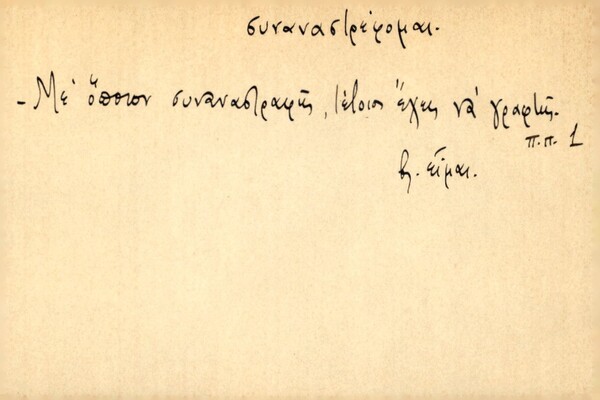 συναναστρέφομαι.
- Μὲ ὅποιον συναναστραφῇς, τέτοιος ἔχεις νὰ γραφτῇς.
π.π. 1
βλ. εἶμαι.